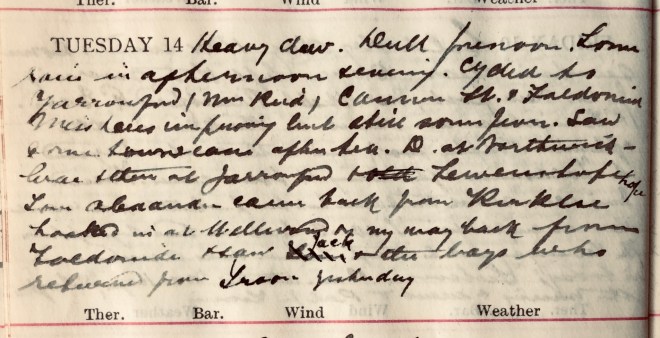 Ther. Bar. Wind Weather
TUESDAY 14 Heavy dew. Dull forenoon. Some
rain in afternoon & evening. Cycled to
Yarrowford (Mrs Reid) Cannon St. & Faldonside
Measles improving but still some fever. Saw
some town cases after tea. D. at
& then at Yarrowford & Lewenshope
Tom Alexander came back from
Looked in at on my way back from
Faldonside & saw Jack & the boys who
returned from Troon yesterday
Ther. Bar. Wind Weather